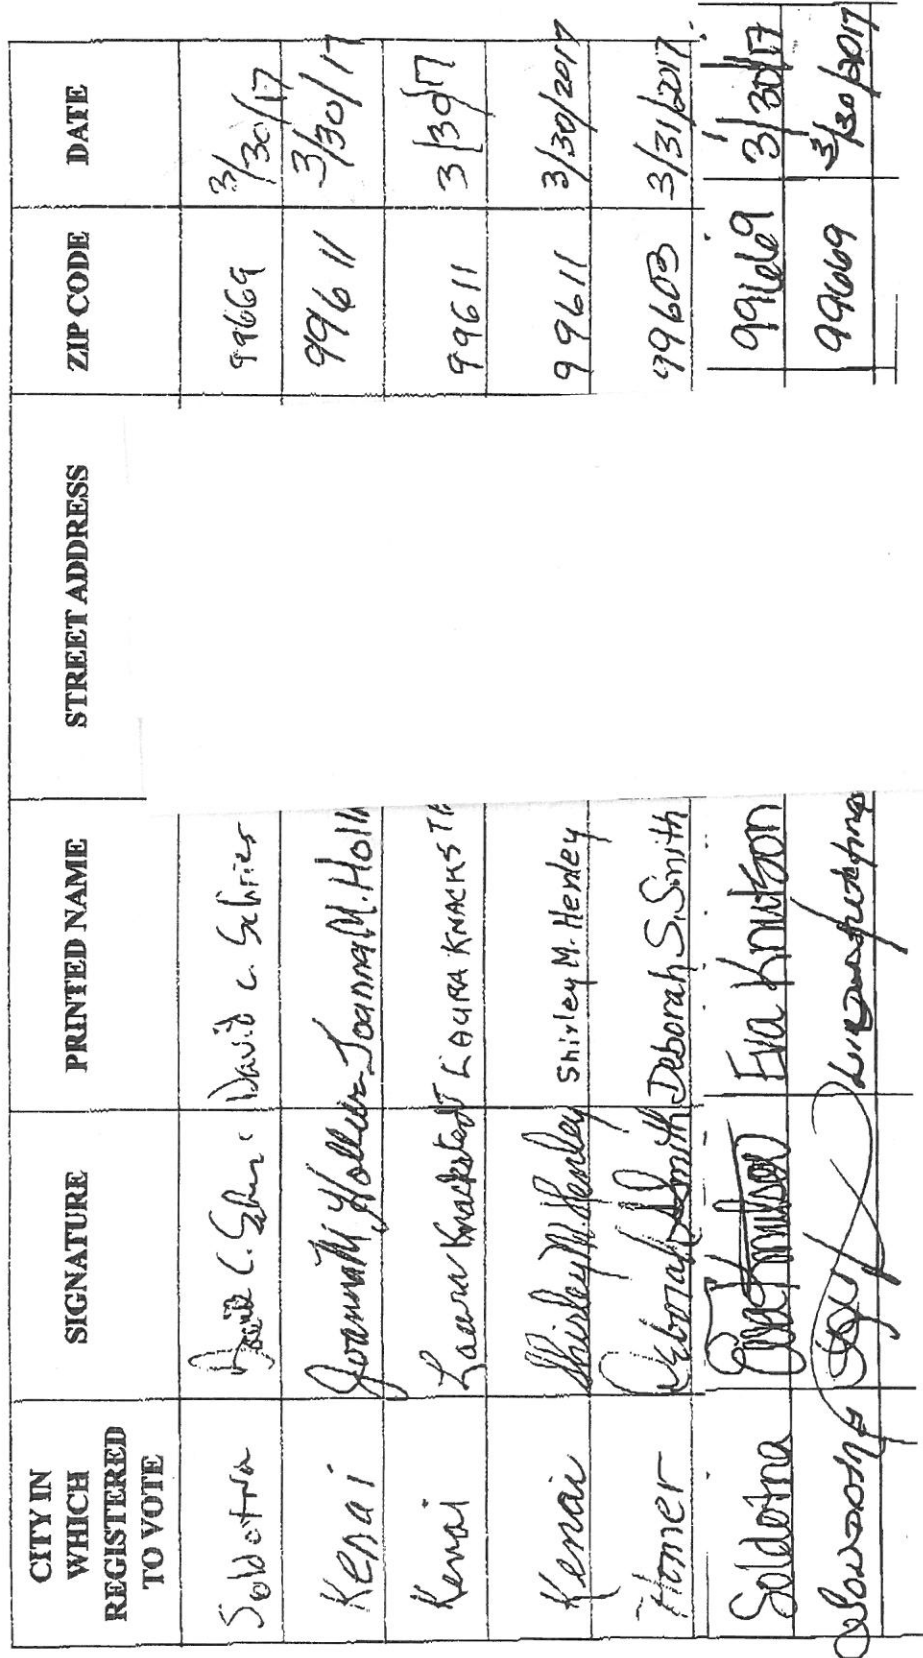 CITY IN WHICH REGISTERED TO VOTE SIGNATURE PRINTED NAME STREET ADDRESS ZIP CODE DATE
Soldotna David C. Schrier David C. Schrier 99669 3/30/17
Kenai Joanna M. Hollier Joanna M. Holli 99611 3/30/17
Kenai Laura Knackstedt LAURA KNACKSTE 99611 3/30/17
Kenai Shirley M. Henley Shirley M. Henley 99611 3/30/2017
Homer Deborah S Smith Deborah S. Smith 99603 3/31/2017
Soldotna Eva Knutson Eva Knutson 99669 3/30/17
Soldotna 99669 3/30/2017